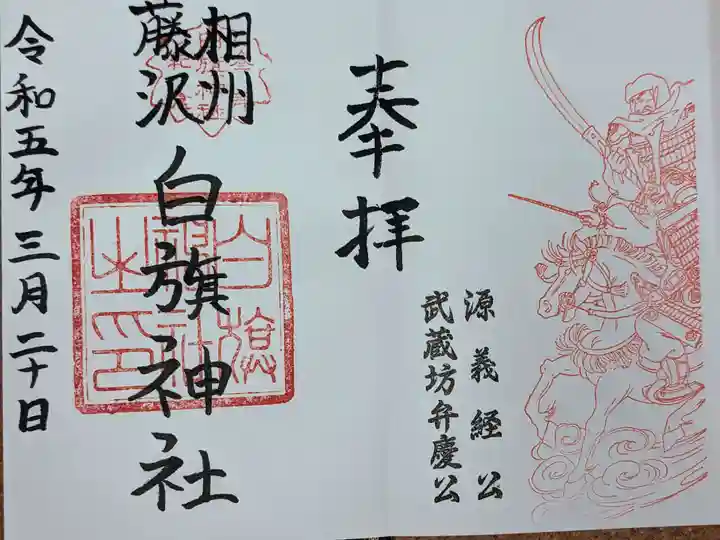 源義経公
武蔵坊弁慶公
奉拝
相州
藤沢
白旗神社
白旗
神社
之印
令和五年三月二十日